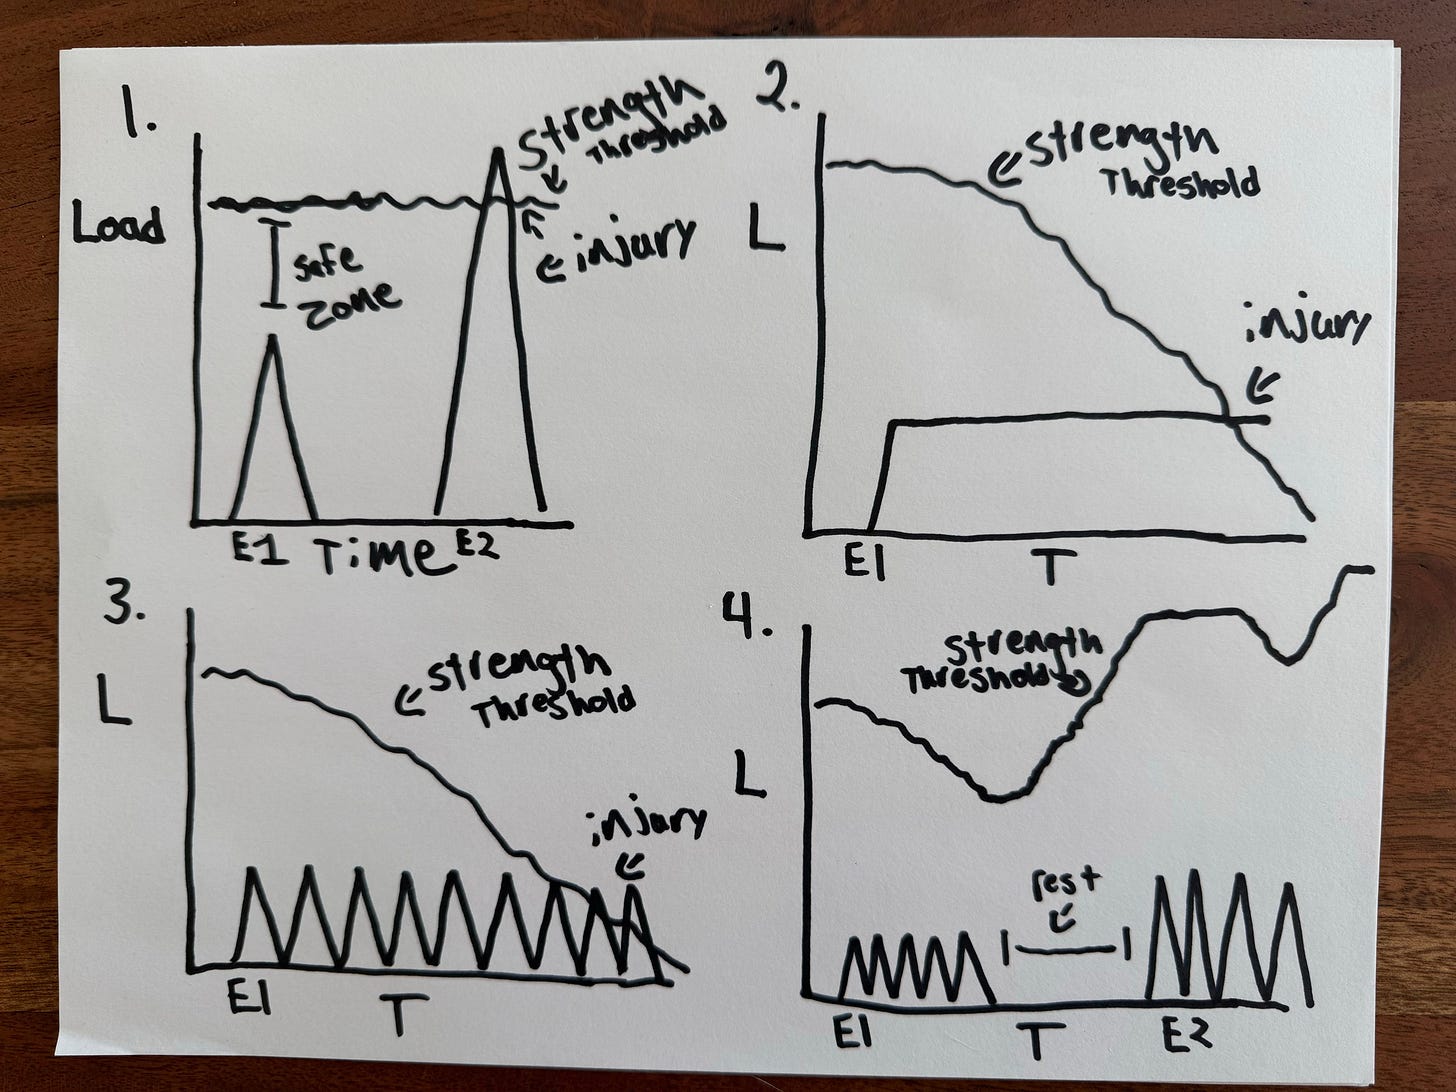 1.
Strength
Threshold
Load
safe
zone
injury
E1 Time E2
2.
Strength
Threshold
L
injury
E1 T
3.
L
Strength
Threshold
injury
E1 T
4.
Strength
Threshold
L
rest
E1 T E2